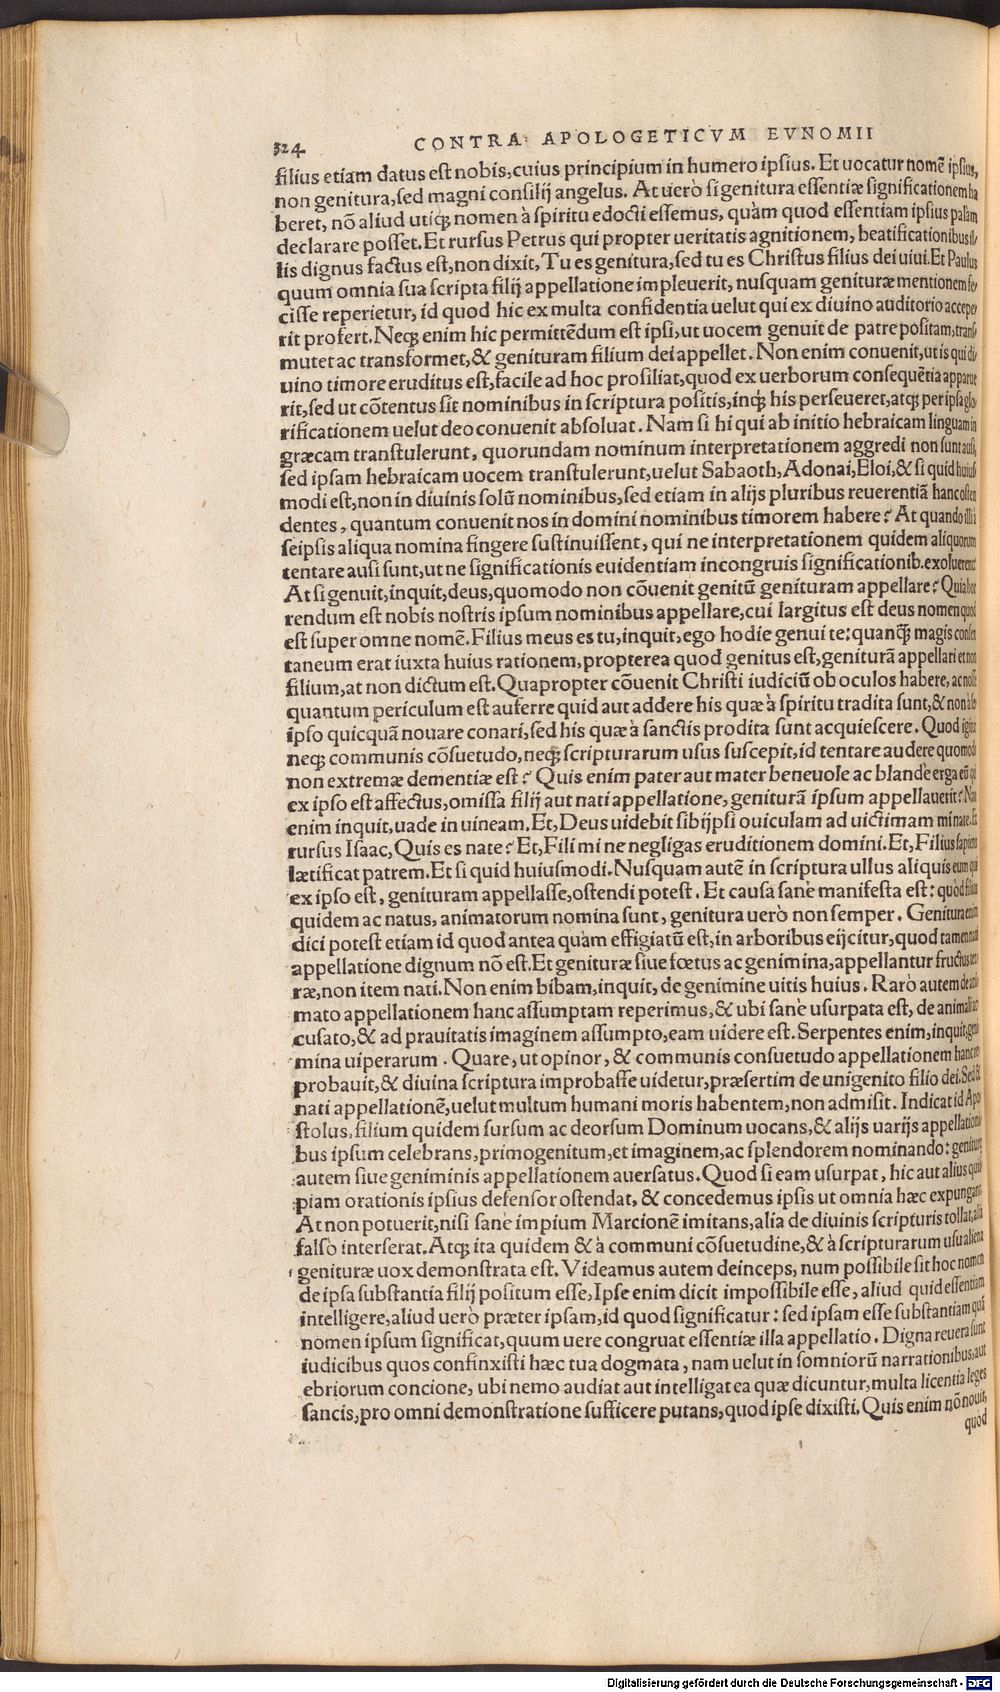 324 CONTRA APOLOGETICVM EVNOMII
filius etiam datus est nobis, cuius principium in humero ipsius. Et uocatur nomẽ ipsius,
non genitura, sed magni consilij angelus. At uerò si genitura essentiæ significationem ha
beret, nõ aliud utiq; nomen à spiritu edocti essemus, quàm quod essentiam ipsius palàm
declarare posset. Et rursus Petrus qui propter ueritatis agnitionem, beatificationibus il/
lis dignus factus est, non dixit, Tu es genitura, sed tu es Christus filius dei uiui. Et Paulus
quum omnia sua scripta filij appellatione impleuerit, nusquam genituræ mentionem fe/
cisse reperietur, id quod hic ex multa confidentia uelut qui ex diuino auditorio accepe/
rit profert. Neq; enim hic permittẽdum est ipsi, ut uocem genuit de patre positam, trans/
mutet ac transformet, & genituram filium dei appellet. Non enim conuenit, ut is qui di/
uino timore eruditus est, facile ad hoc prosiliat, quod ex uerborum consequẽtia apparue
rit, sed ut cõtentus sit nominibus in scriptura positis, inq; his perseueret, atq; per ipsa glo/
rificationem uelut deo conuenit absoluat. Nam si hi qui ab initio hebraicam linguam in
græcam transtulerunt, quorundam nominum interpretationem aggredi non sunt ausi,
sed ipsam hebraicam uocem transtulerunt, uelut Sabaoth, Adonai, Eloi, & si quid huius
modi est, non in diuinis solũ nominibus, sed etiam in alijs pluribus reuerentiã hanc osten
dentes, quantum conuenit nos in domini nominibus timorem habere? At quando illi à
seipsis aliqua nomina fingere sustinuissent, qui ne interpretationem quidem aliquorum
tentare ausi sunt, ut ne significationis euidentiam incongruis significationib. exoluerent?
At si genuit, inquit, deus, quomodo non cõuenit genitũ genituram appellare? Quia hor
rendum est nobis nostris ipsum nominibus appellare, cui largitus est deus nomen quod
est super omne nomẽ. Filius meus es tu, inquit, ego hodie genui te: quanq̃ magis consen
taneum erat iuxta huius rationem, propterea quod genitus est, geniturã appellari et non
filium, at non dictum est. Quapropter cõuenit Christi iudiciũ ob oculos habere, ac nosse
quantum periculum est auferre quid aut addere his quæ à spiritu tradita sunt, & non à se
ipso quicquã nouare conari, sed his quæ à sanctis prodita sunt acquiescere. Quod igitur
neq; communis cõsuetudo, neq; scripturarum usus suscepit, id tentare audere quomodo
non extremæ dementiæ est? Quis enim pater aut mater beneuole ac blandè erga eũ qui
ex ipso est affectus, omissa filij aut nati appellatione, geniturã ipsum appellauerit? Nate
enim inquit, uade in uineam. Et, Deus uidebit sibijpsi ouiculam ad uictimam mi nate. Et
rursus Isaac, Quis es nate? Et, Fili mi ne negligas eruditionem domini. Et, Filius sapiens
lætificat patrem. Et si quid huiusmodi. Nusquam autẽ in scriptura ullus aliquis eum qui
ex ipso est, genituram appellasse, ostendi potest. Et causa sanè manifesta est: quòd filius
quidem ac natus, animatorum nomina sunt, genitura uerò non semper. Genitura enim
dici potest etiam id quod antea quàm effigiatũ est, in arboribus eijcitur, quod tamen nati
appellatione dignum nõ est. Et genituræ siue fœtus ac genimina, appellantur fructus ter
ræ, non item nati. Non enim bibam, inquit, de genimine uitis huius. Rarò autem de ani
mato appellationem hanc assumptam reperimus, & ubi sanè usurpata est, de animali ac
cusato, & ad prauitatis imaginem assumpto, eam uidere est. Serpentes enim, inquit, geni
mina uiperarum. Quare, ut opinor, & communis consuetudo appellationem hanc re
probauit, & diuina scriptura improbasse uidetur, præsertim de unigenito filio dei. Sed &
nati appellationẽ, uelut multum humani moris habentem, non admisit. Indicat id Apo
stolus, filium quidem sursum ac deorsum Dominum uocans, & alijs uarijs appellationi
bus ipsum celebrans, primogenitum, et imaginem, ac splendorem nominando: genituræ
autem siue geniminis appellationem auersatus. Quod si eam usurpat, hic aut alius quis
piam orationis ipsius defensor ostendat, & concedemus ipsis ut omnia hæc expungant.
At non potuerit, nisi sanè impium Marcionẽ imitans, alia de diuinis scripturis tollat, alia
falsò interserat. Atq; ita quidem & à communi cõsuetudine, & à scripturarum usu aliena
genituræ uox demonstrata est. Videamus autem deinceps, num possibile sit hoc nomen
de ipsa substantia filij positum esse, Ipse enim dicit impossibile esse, aliud quid essentiam
intelligere, aliud uerò præter ipsam, id quod significatur: sed ipsam esse substantiam quã
nomen ipsum significat, quum uere congruat essentiæ illa appellatio. Digna reuera sunt
iudicibus quos confinxisti hæc tua dogmata, nam uelut in somniorũ narrationibus, aut
ebriorum concione, ubi nemo audiat aut intelligat ea quæ dicuntur, multa licentia leges
sancis, pro omni demonstratione sufficere putans, quod ipse dixisti. Quis enim nõ nouit,
quòd
Digitalisierung gefördert durch die Deutsche Forschungsgemeinschaft - DFG